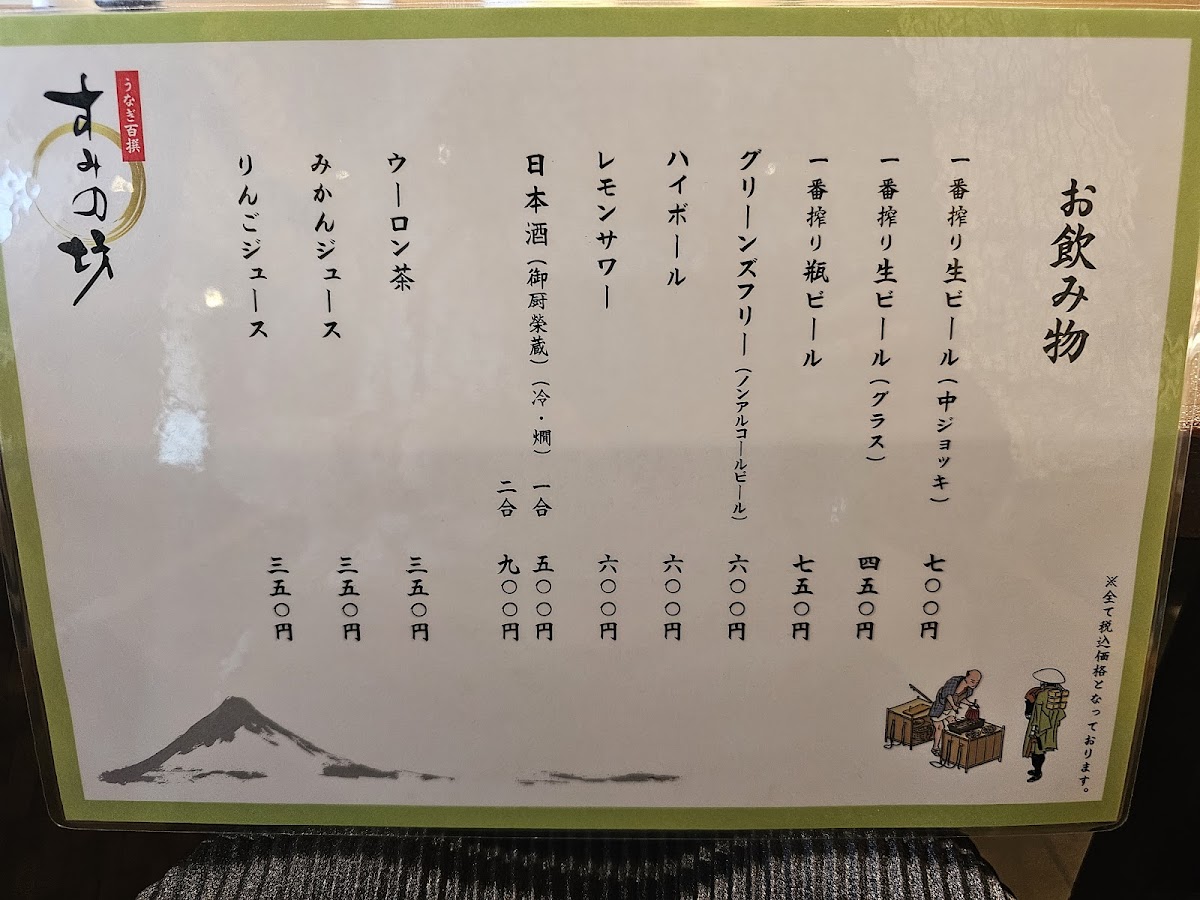 お飲み物
一番搾り生ビール(中ジョッキ) 七〇〇円
一番搾り生ビール(グラス) 四五〇円
一番搾り瓶ビール 七五〇円
グリーンズフリー(ノンアルコールビール) 六〇〇円
ハイボール 六〇〇円
レモンサワー 六〇〇円
日本酒(御厨榮蔵)(冷・燗) 一合 五〇〇円
二合 九〇〇円
ウーロン茶 三五〇円
みかんジュース 三五〇円
りんごジュース 三五〇円
うなぎ百撰
すみの坊
※全て税込価格となっております。